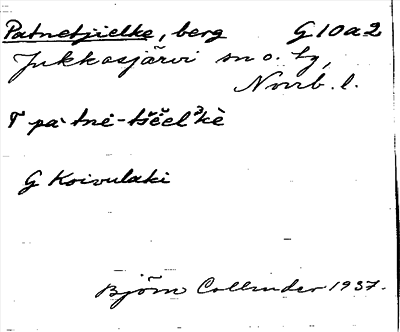 Patnetjielke, berg G 10 a 2
Jukkasjärvi sn o. tg,
Norrb. l.
G Koivulaki
Björn Collinder 1937.